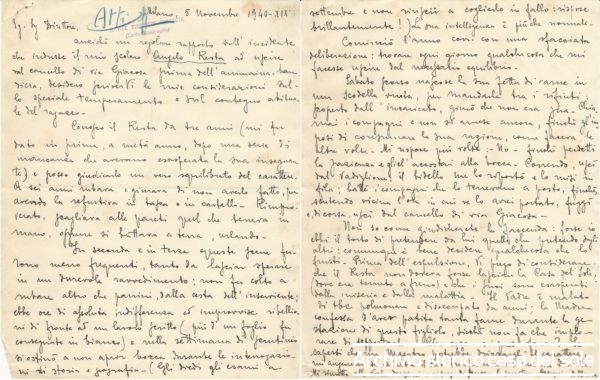 Atti
Milano, 8 Novembre 1940-XIX°
Eg. Sig. Direttore,
anziché un regolare rapporto sull'incidente
che indusse il mio scolaro Angelo Resta ad uscire
dal cancello di via Giacosa prima dell'ammaina-ban
diera, desidero riferirLe le mie considerazioni sul-
lo speciale temperamento e sul contegno abitua-
le del ragazzo.
Conosco il Resta da tre anni (mi fu
dato in prima, a metà anno, dopo una serie di
mancanze che avevano esasperata la sua insegnan-
te) e posso giudicarlo un vero squilibrato del carattere.
A sei anni rubava e giurava di non averlo fatto, pur
avendo la refurtiva in tasca e in cartella. Rimpro-
verato, scagliava alle pareti quel che teneva in
mano, oppure si buttava a terra, urlando.
In seconda e in terza queste scene fu-
rono meno frequenti, tanto da lasciar sperare
in un durevole ravvedimento; non fu colto a
rubare altro che panini, dalla cesta dell'inserviente;
ebbe ore di assoluta indifferenza ed improvvise ribellio-
ni di fronte ad un lavoro scritto (più d'un foglio fu
consegnato in bianco) e nella settimana di
si ostinò a non aprir bocca durante le interrogazio-
ni di storia e geografia - (Gli diedi gli esami a
settembre e non riuscii a coglierlo in fallo: rispose
brillantemente!) La sua intelligenza è più che normale.
Cominciò l'anno così con una sfacciata
deliberazione: trovare ogni giorno qualche cosa che mi
facesse uscire dal necessario equilibrio.
Sabato scorso nascose la sua fetta di carne in
una scodella vuota, per mandarla tra i rifiuti;
scoperto dall'incaricato, giurò che non era sua. Chia
mai i compagni e non si smosse ancora, finché gli im
posi di consumare la sua razione, come faceva le
altre volte. Mi rispose più volte: - No - finché perdetti
la pazienza e gliel'accostai alla bocca. Correndo, uscì
dal padiglione, il bidello me lo riportò e lo misi in
fila; batté i compagni che lo tenevano a posto, finché,
stando vicina ove lo avevi portato, fuggì
di corsa, uscì dal cancello di via Giacosa.
Non so come giudicherete la faccenda: forse io
ebbi il torto di pretendere da lui quello che pretendo dagli
altri; comunque è bene decidere qualche cosa che lo
frusti. Prima dell'espulsione, Vi prego di considerare
che il Resta non doveva forse lasciare la Casa del Sole
(dove era tenuto a freno) e che i suoi sono esasperati
dalla miseria e dalla malattia. Il Padre è malato
di tbc polmonare e disoccupato da anni; la Madre
confessa d'aver patita tanta fame durante la ge-
stazione di questo figliolo,
Archivio storico casa del sole